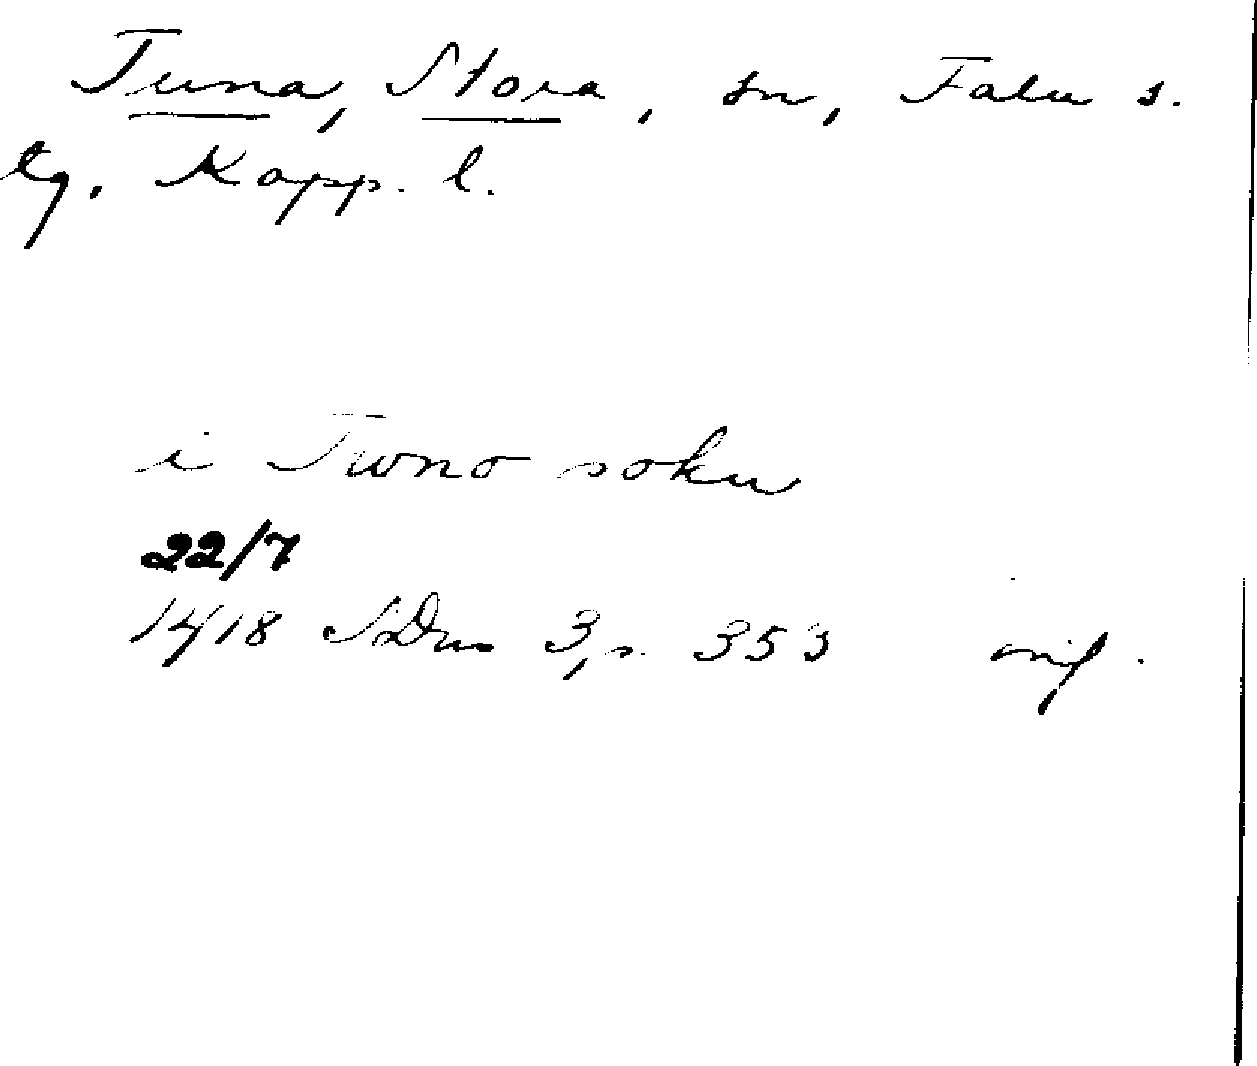 Tuna, Stora, sn, Falu s.
tg. Kopp. l.
i Twno sokn
22/7
1418 SDns 3, s. 353 orig.